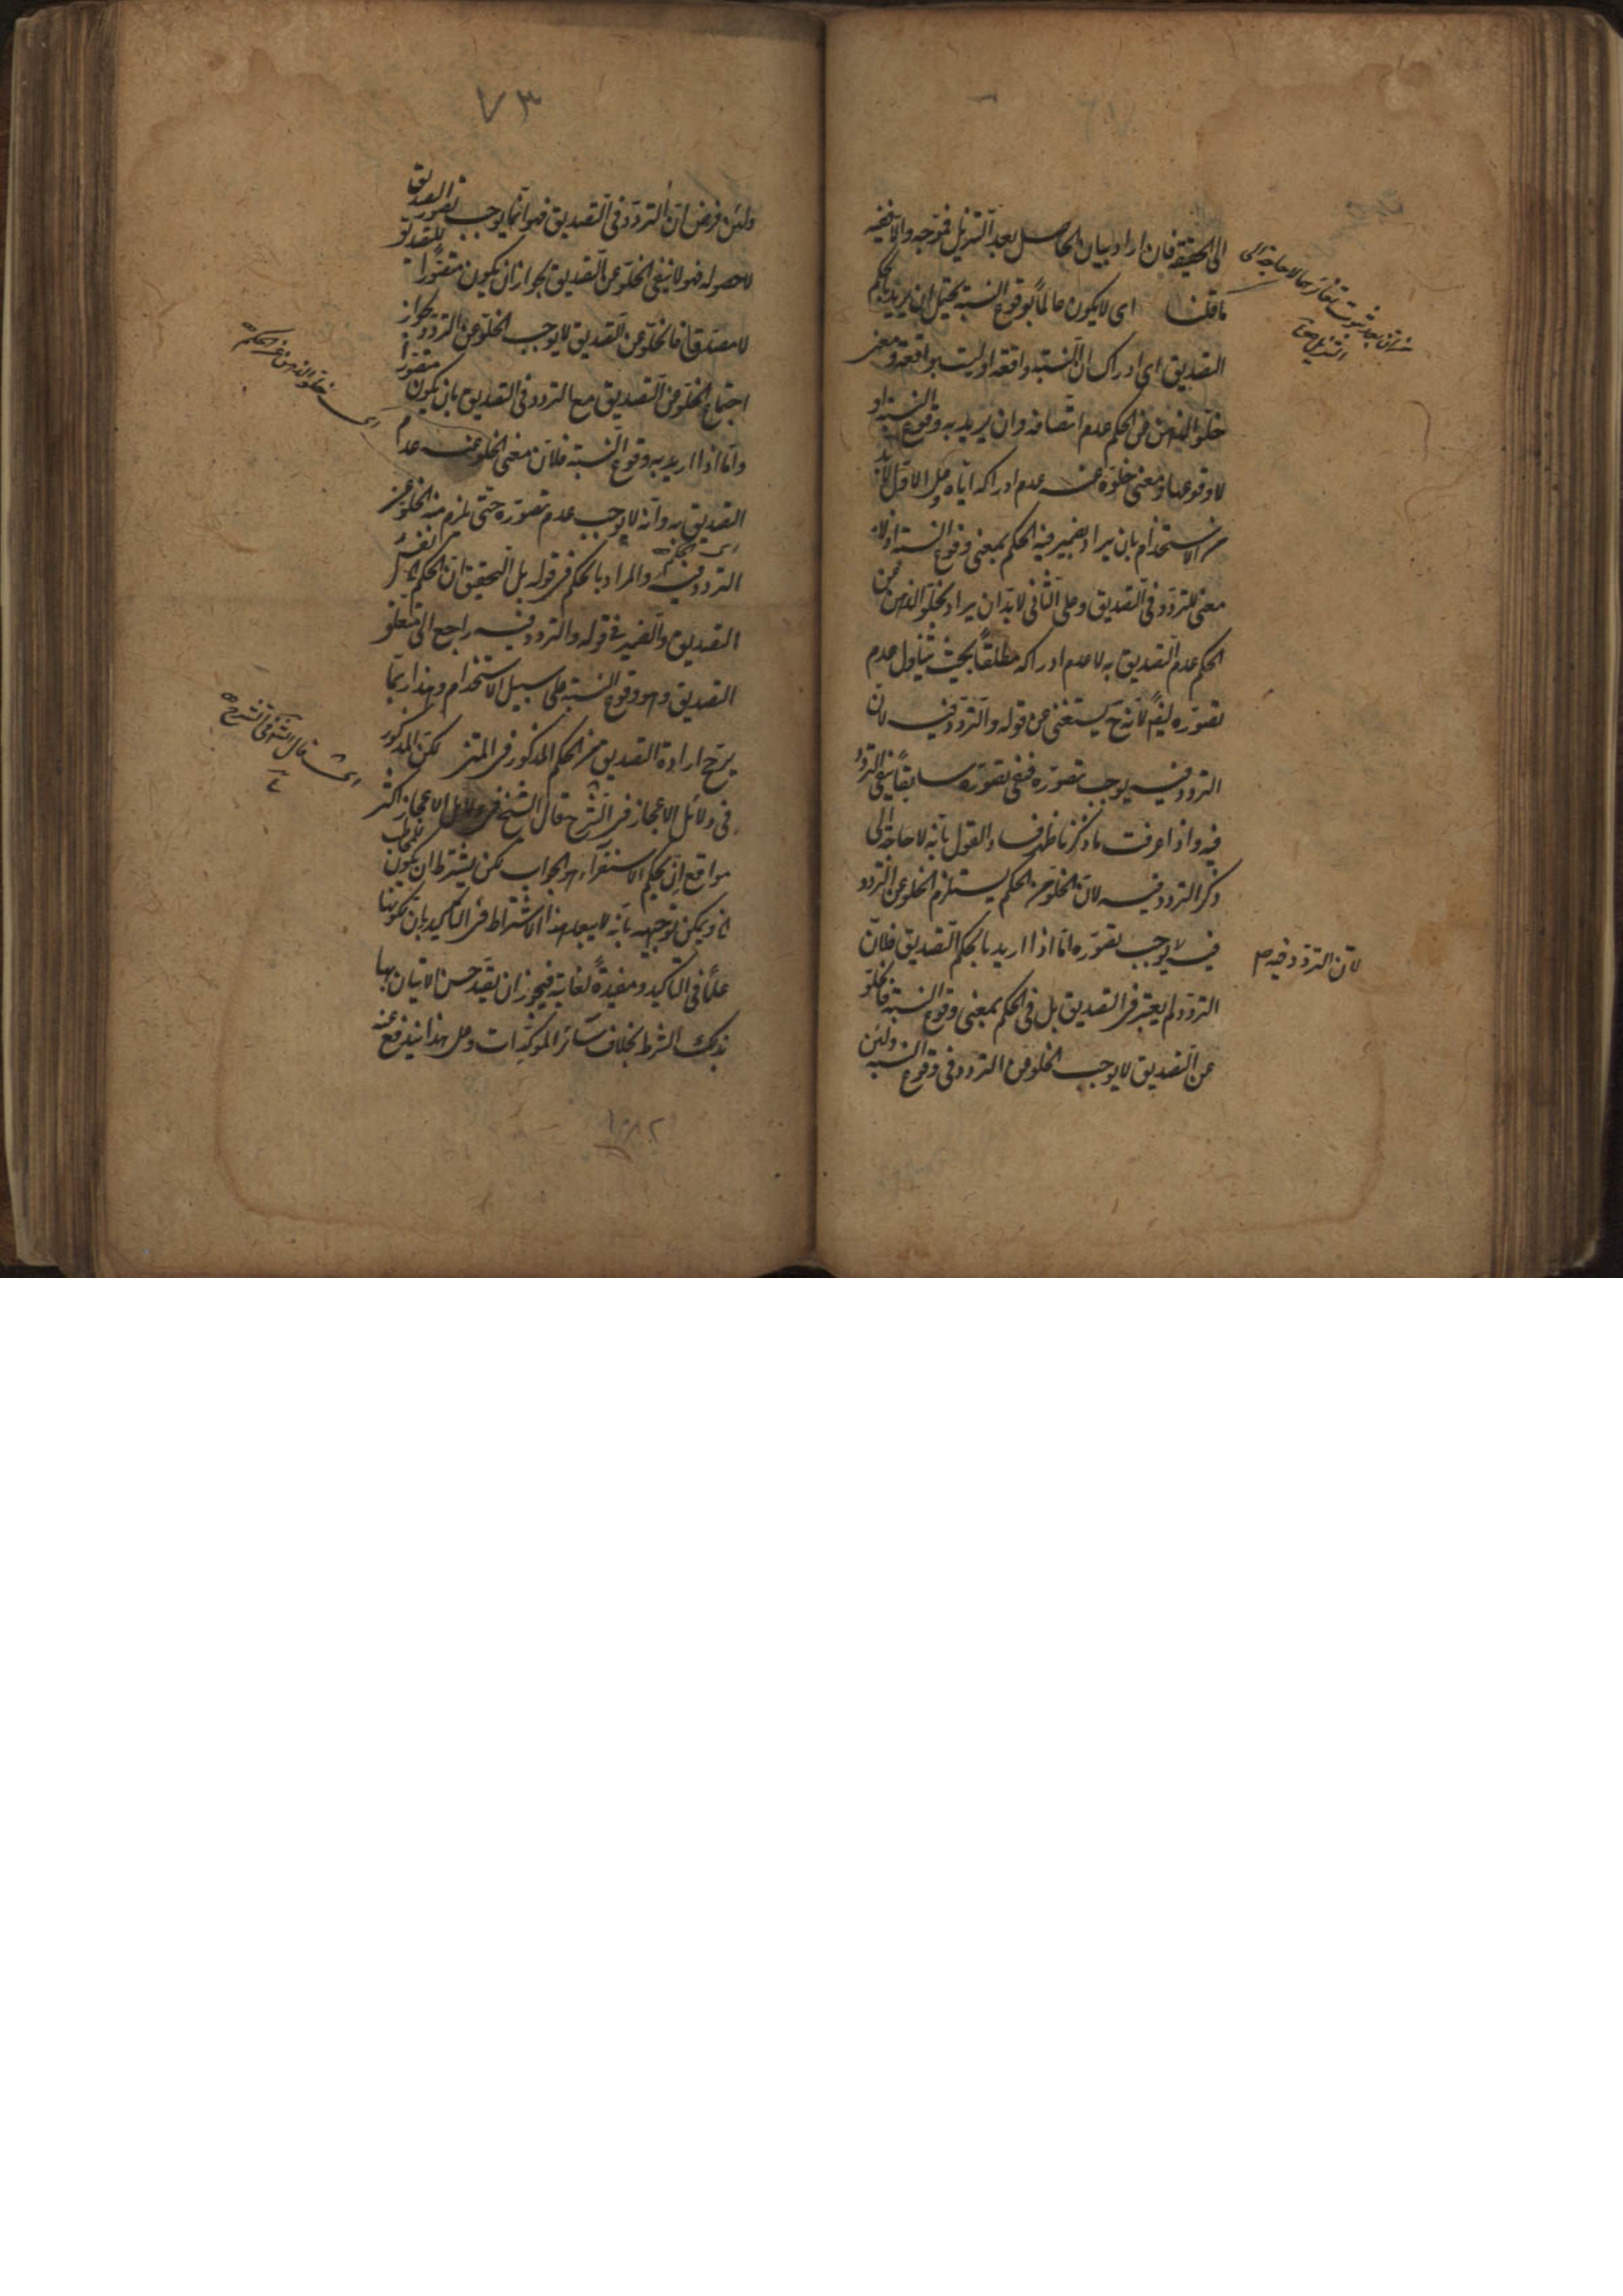 الى الحقيقة فان اراد بيان الحاصل بعد التنزيل فتوجه والا ففيه
ما قلنا اى لا يكون عالما بوقوع النسبة يحتمل ان يريد بالحكم
التصديق اى ادراك ان النسبة واقعة او ليست بواقعة ومعنى
خلو الذهن عن الحكم عدم اتصافه وان يريد به وقوع النسبة او
لا وقوعها ومعنى خلوه عنه عدم ادراكه اياه وعلى الاول لا بد
من الاستخدام بان يراد بضمير فيه الحكم بمعنى وقوع النسبة اذ لا
معنى للتردد فى التصديق وعلى الثانى لا بد ان يراد بخلو الذهن عن
الحكم عدم التصديق به لا عدم ادراكه مطلقا بحيث يتناول عدم
تصوره ايضا لانه ح يستغنى عن قوله والتردد فيه لان
التردد فيه يوجب تصوره فنفى تصوره سابقا ينفى التردد
فيه واذا عرفت ما ذكرنا ظهر فساد القول بانه لا حاجة الى
ذكر التردد فيه لان الخلو عن الحكم يستلزم الخلو عن التردد
فيه لا يوجب تصوره اما اذا اريد بالحكم التصديق فلان
التردد لم يعتبر فى التصديق بل فى الحكم بمعنى وقوع النسبة فالخلو
عن التصديق لا يوجب الخلو عن التردد فى وقوع النسبة ولئن
لان التردد فيه صح
٧٣
ولئن فرض ان التردد فى التصديق فهو انما يوجب تصور التصديق
لا حصوله فهو لا ينفى الخلو عن التصديق لجواز ان يكون متصورا للتصديق
لا مصدقا فالخلو عن التصديق لا يوجب الخلو عن التردد لجواز
اجتماع الخلو عن التصديق مع التردد فى التصديق بان يكون متصورا
واما اذا اريد به وقوع النسبة فلان معنى الخلو عنه عدم
التصديق به وانه لا يوجب عدم تصوره حتى يلزم منه الخلو عن
اى الحكم
التردد فيه والمراد بالحكم فى قوله بل التحقيق ان الحكم نفس
التصديق والضمير فى قوله والتردد فيه راجع الى متعلق
التصديق وهو وقوع النسبة على سبيل الاستخدام وهذا ربما
يرجح ارادة التصديق من الحكم المذكور فى المتن لكن المذكور
فى دلائل الاعجاز فى الشرح قال الشيخ فى دلائل الاعجاز اكثر
مواقع ان بحكم الاستقراء هو الجواب لكن يشترط ان يكون للمخاطب
اه ويمكن توجيهه بانه لا يبعد هذا الاشتراط فى التاكيد بان لكونها
علما فى التاكيد ومفيدة لغايته فيجوز ان يقيد حسن الاتيان بها
بذلك الشرط بخلاف سائر المؤكدات وعلى هذا يندفع عنه
اى خلو الذهن عن الحكم